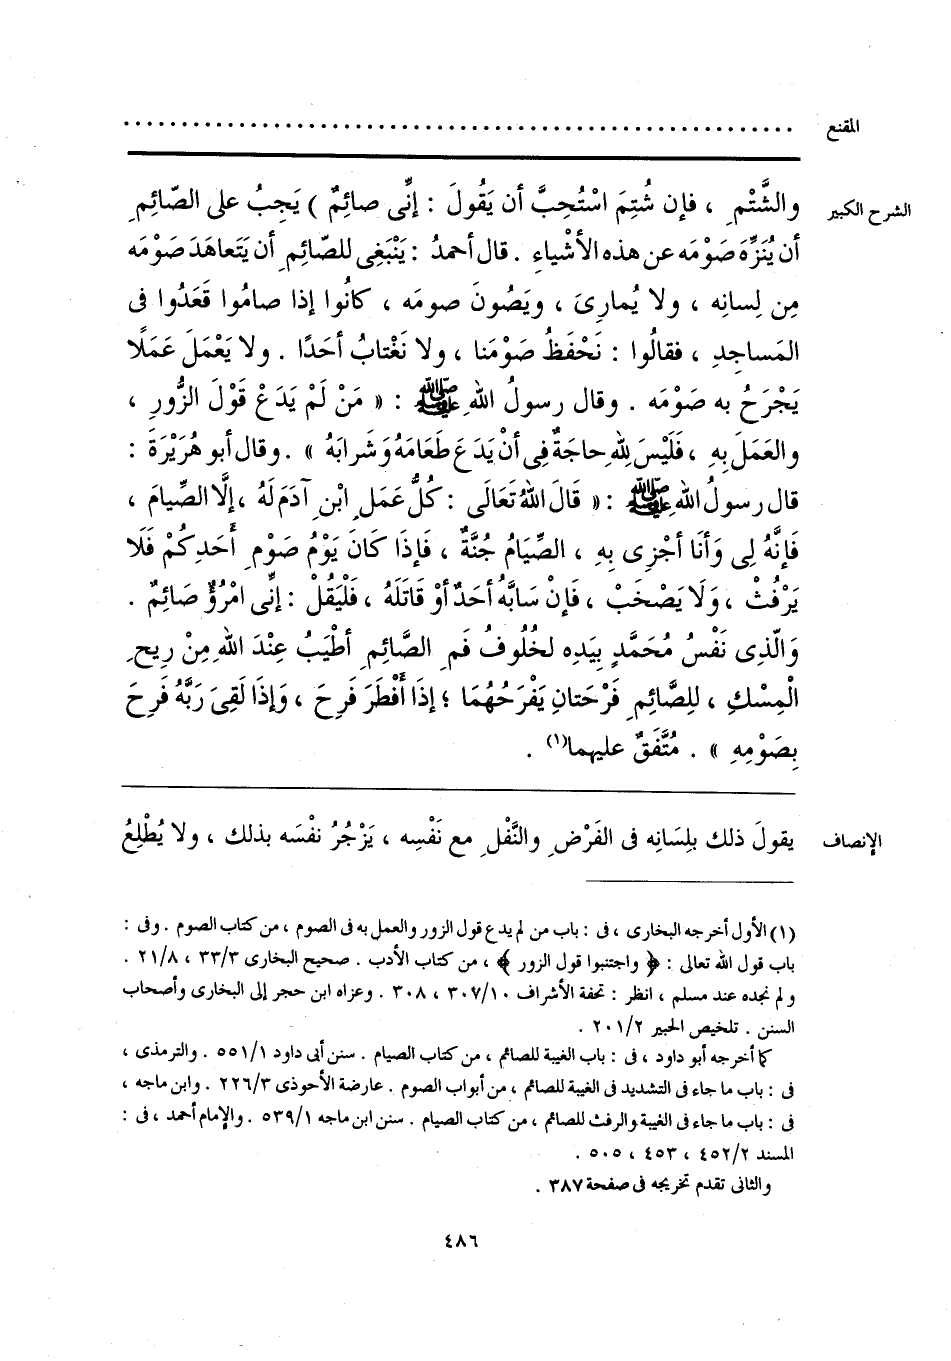 المقنع ............................................................
الشرح الكبير والشَّتْمِ ، فإن شُتِمَ اسْتُحِبَّ أن يَقُولَ : إنِّى صائِمٌ ) يَجِبُ على الصّائِمِ
أن يُنَزِّهَ صَوْمَه عن هذه الأشْياءِ . قال أحمدُ : يَنْبَغِى للصّائِمِ أن يَتَعاهَدَ صَوْمَه
مِن لِسانِه ، ولا يُمارِىَ ، ويَصُونَ صومَه ، كانُوا إذا صامُوا قَعَدُوا فى
المَساجِدِ ، فقالُوا : نَحْفَظُ صَوْمَنا ، ولا نَغْتابُ أحَدًا . ولا يَعْمَلَ عَمَلًا
يَجْرَحُ به صَوْمَه . وقال رسولُ اللهِ ﷺ : « مَنْ لَمْ يَدَعْ قَوْلَ الزُّورِ ،
والعَمَلَ بِهِ ، فَلَيْسَ لِلّهِ حاجَةٌ فِى أنْ يَدَعَ طَعَامَهُ وَشَرابَهُ » . وقال أبو هُرَيْرَةَ :
قال رسولُ اللهِ ﷺ : « قَالَ اللهُ تَعَالَى : كُلُّ عَمَلِ ابْنِ آدَمَ لَهُ ، إلَّا الصِّيامَ ،
فَإنَّهُ لِى وَأنَا أجْزِى بِهِ ، الصِّيَامُ جُنَّةٌ ، فَإذَا كَانَ يَوْمُ صَوْمِ أَحَدِكُمْ فَلَا
يَرْفُثْ ، وَلَا يَصْخَبْ ، فَإنْ سَابَّهُ أحَدٌ أوْ قَاتَلَهُ ، فَلْيَقُلْ : إنِّى امْرُؤٌ صَائِمٌ .
وَالَّذِى نَفْسُ مُحَمَّدٍ بِيَدِه لخُلُوفُ فَمِ الصَّائِمِ أطْيَبُ عِنْدَ اللهِ مِنْ رِيحِ
الْمِسْكِ ، للِصَّائِمِ فَرْحَتانِ يَفْرَحُهُمَا ؛ إذَا أَفْطَرَ فَرِحَ ، وَإذَا لَقِىَ رَبَّهُ فَرِحَ
بِصَوْمِهِ » . مُتَّفَقٌ عليهما(١) .
الإنصاف يقولَ ذلك بلِسَانِه فى الفَرْضِ والنَّفْلِ مع نَفْسِه ، يَزْجُرُ نفْسَه بذلك ، ولا يُطْلِعُ
(١) الأول أخرجه البخارى ، فى : باب من لم يدع قول الزور والعمل به فى الصوم ، من كتاب الصوم . وفى :
باب قول الله تعالى : ﴿ واجتنبوا قول الزور ﴾ ، من كتاب الأدب . صحيح البخارى ٣/‏٣٣ ، ٨/‏٢١ .
ولم نجده عند مسلم ، انظر : تحفة الأشراف ١٠/‏٣٠٧ ، ٣٠٨ . وعزاه ابن حجر إلى البخارى وأصحاب
السنن . تلخيص الحبير ٢/‏٢٠١ .
كما أخرجه أبو داود ، فى : باب الغيبة للصائم ، من كتاب الصيام . سنن أبى داود ١/‏٥٥١ . والترمذى ،
فى : باب ما جاء فى التشديد فى الغيبة للصائم ، من أبواب الصوم . عارضة الأحوذى ٣/‏٢٢٦ . وابن ماجه ،
فى : باب ما جاء فى الغيبة والرفث للصائم ، من كتاب الصيام . سنن ابن ماجه ١/‏٥٣٩ . والإمام أحمد ، فى :
المسند ٢/‏٤٥٢ ، ٤٥٣ ، ٥٠٥ .
والثانى تقدم تخريجه فى صفحة ٣٨٧ .
٤٨٦